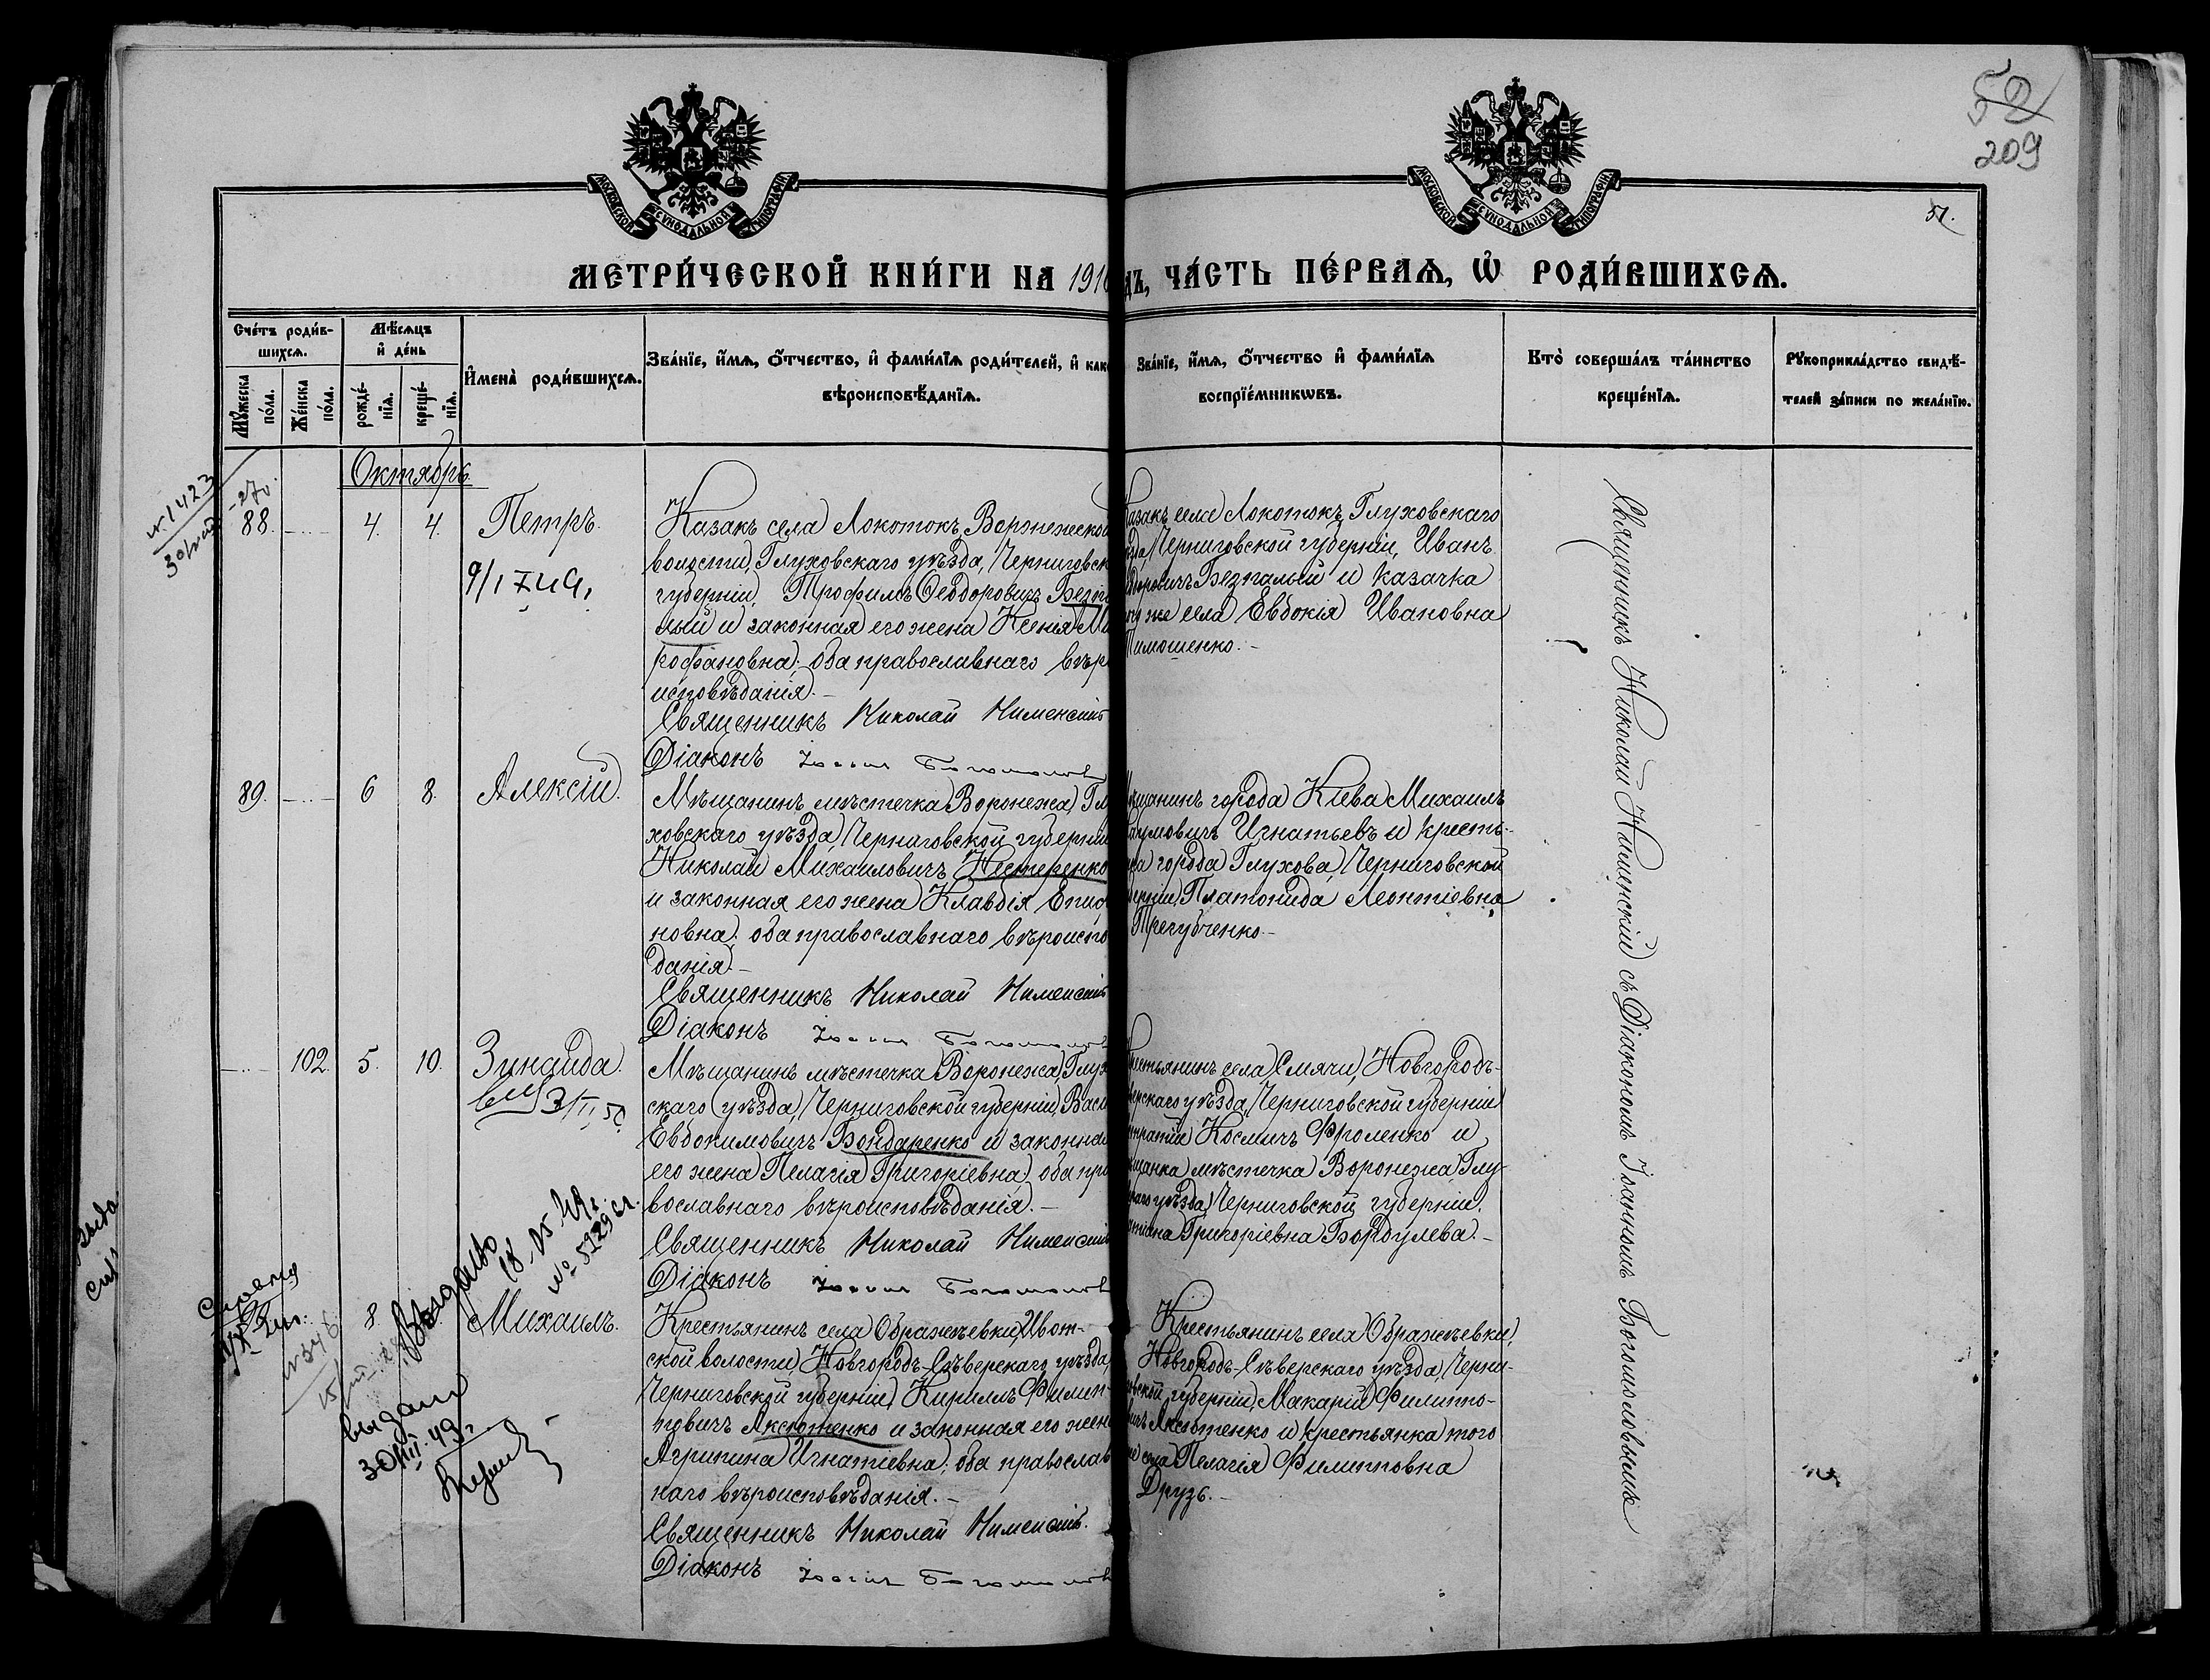 52
209
51.
МОСКОВСКОЙ СѴНОДАЛЬНОЙ ТИПОГРАФІИ
МОСКОВСКОЙ СѴНОДАЛЬНОЙ ТИПОГРАФІИ
МЕТРИ́ЧЕСКОЙ КНИ́ГИ НА 191
ДЪ, ЧА́СТЬ ПЕ́РВАѦ, Ѡ҆ РОДИ́ВШИХСѦ.
Сче́тъ роди́в-
шихсѧ.
Мѣ́сѧцъ
и҆ де́нь
Мꙋ́жеска
по́ла.
Же́нска
по́ла.
рожде́-
нїѧ.
креще́-
нїѧ.
И҆мена̀ роди́вшихсѧ.
Зва́нїе, и҆́мѧ, ѻ҆́тчество, и҆ фами́лїѧ роди́телей, и҆ как
вѣроисповѣ́данїѧ.
Зва́нїе, и҆́мѧ, ѻ҆́тчество и҆ фами́лїѧ
воспрїе́мникѡвъ.
Кто̀ соверша́лъ та́инство
креще́нїѧ.
Рꙋкоприкла́дство свидѣ́-
телей за́писи по жела́нїю.
Октябрь
№ 1423
88.
4.
4.
Петръ.
Казакъ села Локотокъ, Воронежской
волости, Глуховскаго уѣзда, Черниговск
губерніи, Трофимъ Ѳеодоровичъ Безпа
лый и законная его жена Ксенія Ми
рофановна; оба православнаго вѣро
исповѣданія.-
Священникъ Николай Нименскій
Діаконъ
казакъ села Локотокъ, Глуховскаго
ѣзда, Черниговской губерніи, Иванъ
доровичъ Безпалый и казачка
ого же села Евдокія Ивановна
Тимошенко.-
89.
6
8.
Алексій.
Мѣщанинъ мѣстечка Воронежа, Глу
ховскаго уѣзда, Черниговской губерніи
Николай Михаиловичъ Нестеренко
и законная его жена Клавдія Епиф
новна; оба православнаго вѣроиспо
данія.-
Священникъ Николай Нименскій
Діаконъ
щанинъ города Кіева Михаилъ
умовичъ Игнатьевъ и кресть-
ка города Глухова, Черниговской
ерніи, Платонида Леонтіевна
Трегубченко.-
102.
5.
10.
Зинаида.
Мѣщанинъ мѣстечка Воронежа, Глух
скаго уѣзда, Черниговской губерніи, Васи
Евдокимовичъ Бондаренко и законная
его жена Пелагія Григоріевна; оба пра
вославнаго вѣроисповѣданія.-
Священникъ Николай Нименскій
Діаконъ
рестьянинъ села Смячи, Новгородъ-
верскаго уѣзда, Черниговской губерніи
Космичъ Фроленко и
щанка мѣстечка Воронежа, Глу-
скаго уѣзда, Черниговской губерніи,
тіана Григоріевна Бордулева.-
8.
Михаилъ.
Крестьянинъ села Ображѣевки, Ивот-
ской волости, Новгородъ-Сѣверскаго уѣзда,
Черниговской губерніи, Кириллъ Филип-
повичъ Аксютенко и законная его жена
Агрипина Игнатіевна; оба православ
наго вѣроисповѣданія.-
Священникъ Николай Нименскій.
Діаконъ
Крестьянинъ села Ображѣевки,
Новгородъ-Сѣверскаго уѣзда, Черни-
овской губерніи, Макарій Филиппо-
вичъ Аксютенко и крестьянка того
же села Пелагія Филипповна
Друзь.-
Священникъ Николай Нименскій съ Діакономъ Іоанномъ Богомоловымъ
выдано